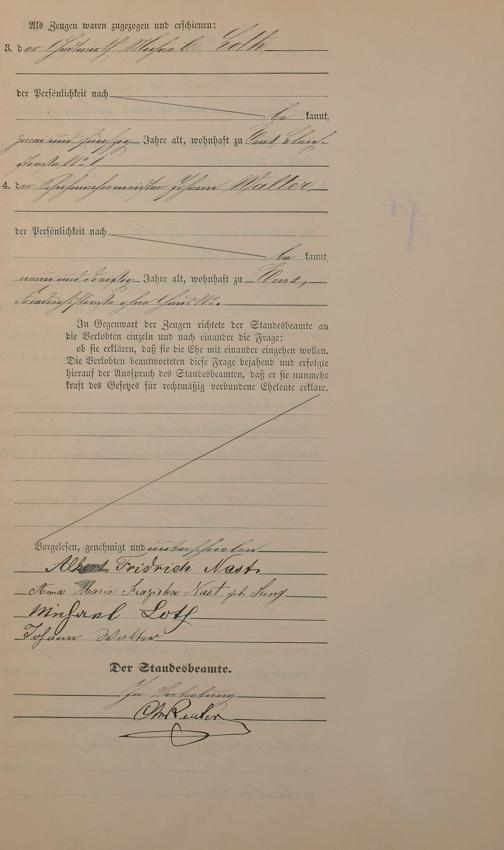 Als Zeugen waren zugezogen und erschienen:
3. der Gastwirth Michael Loth
der Persönlichkeit nach
be kannt,
zwei und fünfzig Jahre alt, wohnhaft zu Ems,
straße No. 1
4. der Johann Walter,
der Persönlichkeit nach
be kannt,
neun und dreißig Jahre alt, wohnhaft zu Ems,
Friedrichstraße ohne Haus No.
In Gegenwart der Zeugen richtete der Standesbeamte an
die Verlobten einzeln und nach einander die Frage:
ob sie erklären, daß sie die Ehe mit einander eingehen wollen.
Die Verlobten beantworteten diese Frage bejahend und erfolgte
hierauf der Ausspruch des Standesbeamten, daß er sie nunmehr
kraft des Gesetzes für rechtmäßig verbundene Eheleute erkläre.
Vorgelesen, genehmigt und unterschrieben
Albert Fridrich Nast
Anna Maria Franziska Nast geb. Jung
Michael Loth
Johann Walter
Der Standesbeamte.
In Vertretung